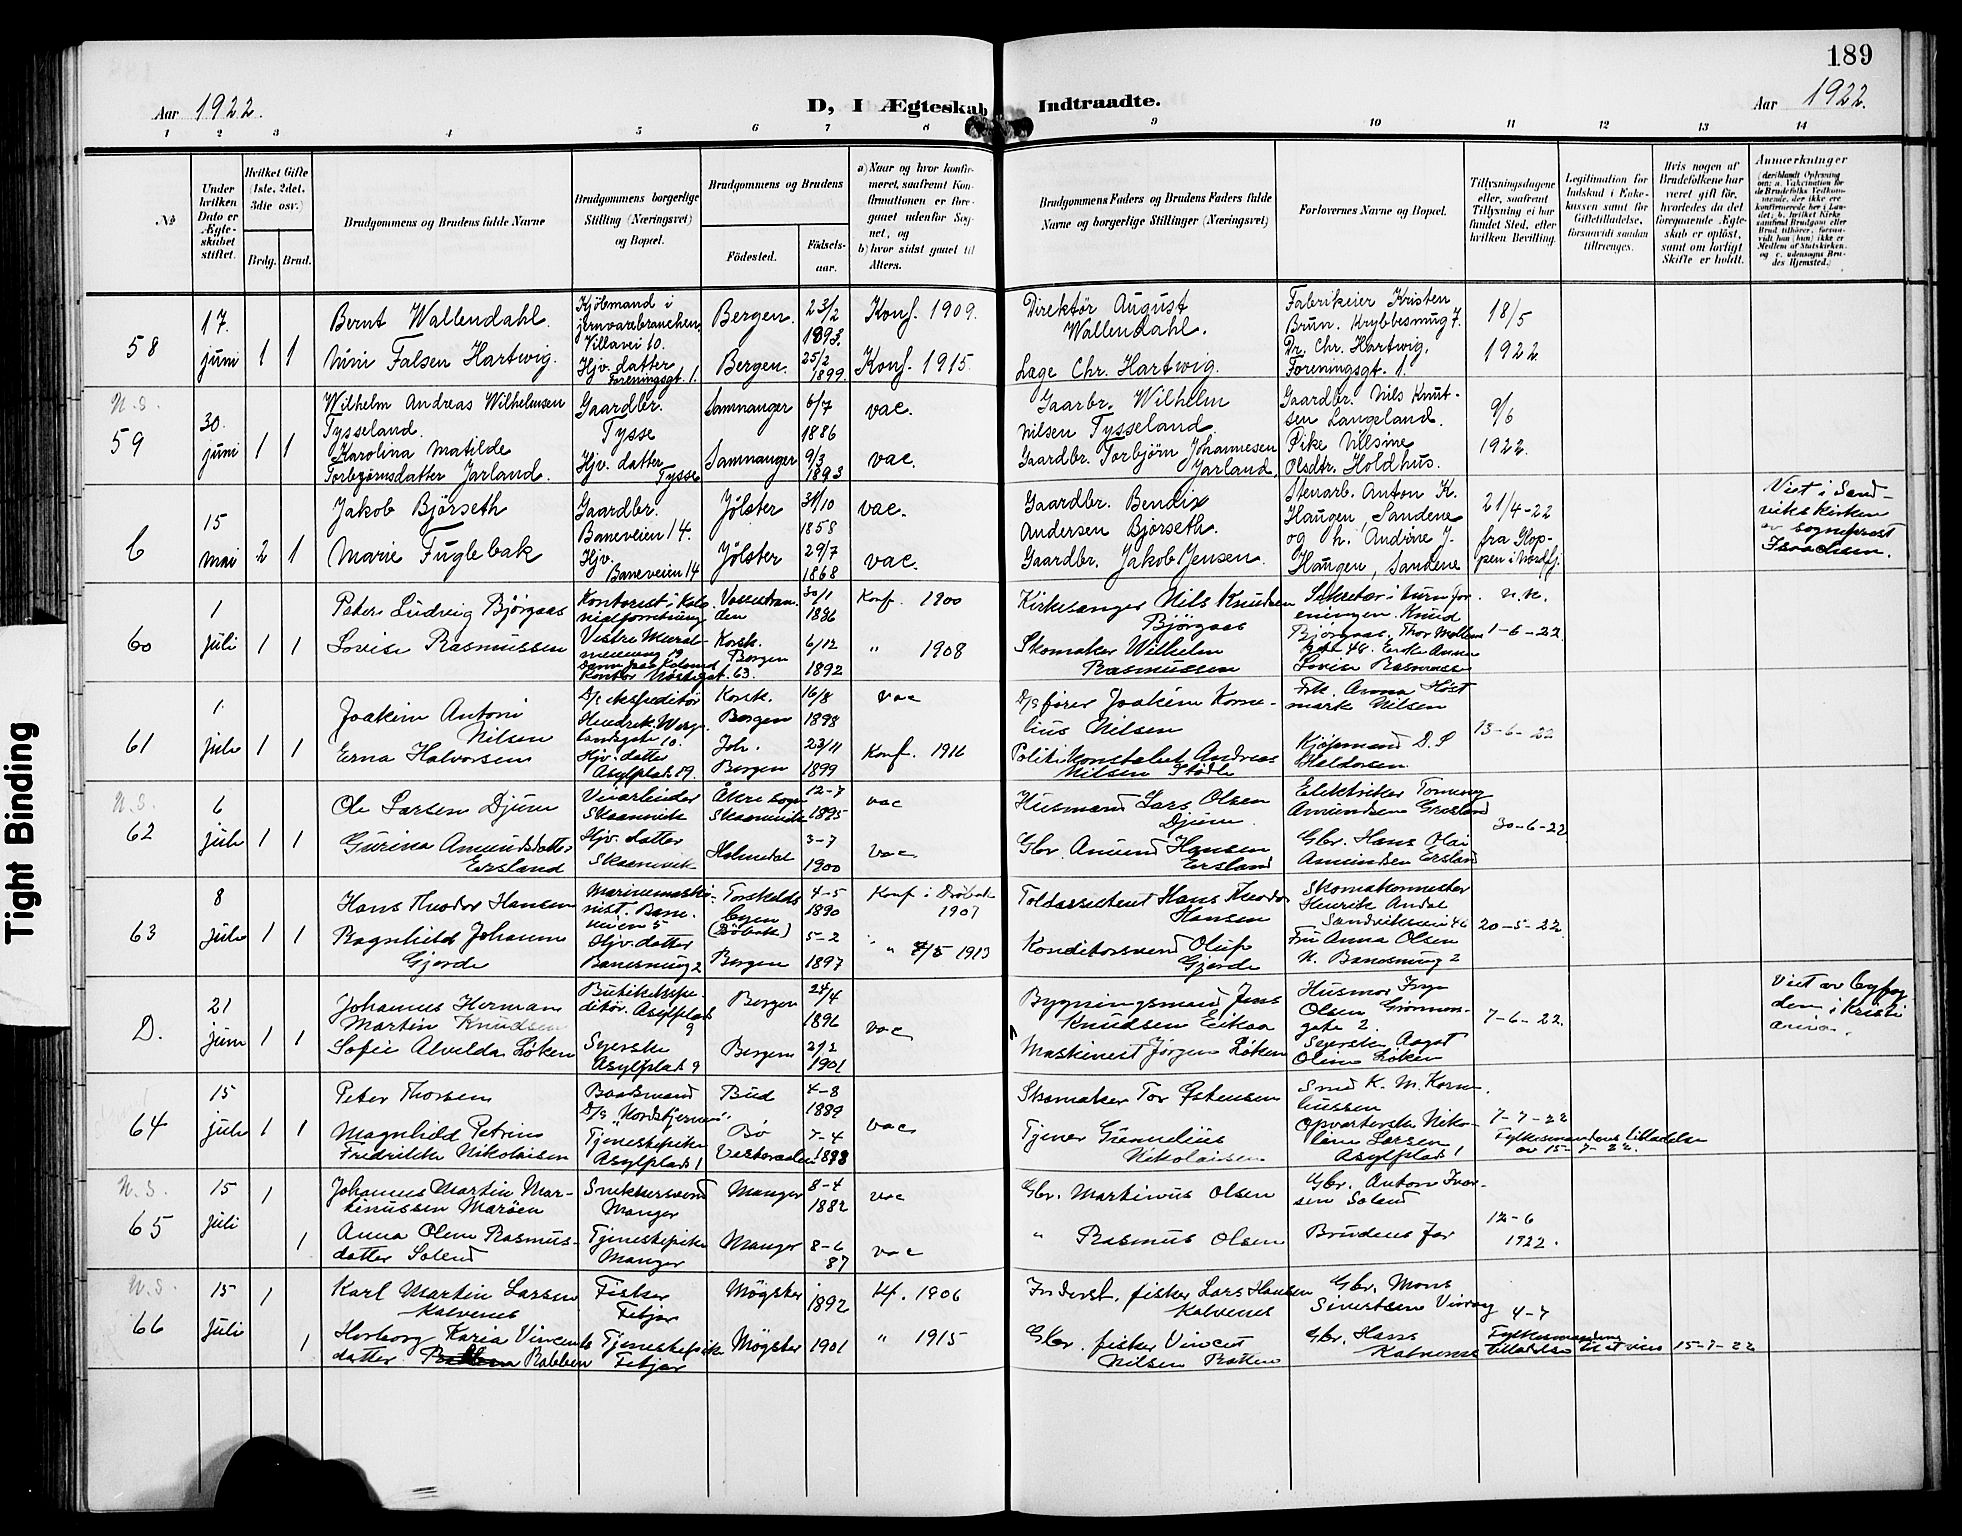 189
Aar 1922.
D, I Ægteskab Indtraadte.
Aar 1922.
1 2 3 4 5 6 7 8 9 10 11 12 13 14
No
Under hvilken Dato er Ægteskabet stiftet.
Hvilket Gifte (1ste, 2det, 3die osv.)
Brdg. Brud.
Brudgommens og Brudens fulde Navne
Brudgommens borgerlige Stilling (Næringsvei) og Bopæl.
Brudgommens og Brudens
Födested.
Födsels-aar.
a) Naar og hvor konfirmeret, saafremt Konfirmationen er foregaaet udenfor Sognet, og
b) hvor sidst gaaet til Alters.
Brudgommens Faders og Brudens Faders fulde Navne og borgerlige Stillinger (Næringsvei)
Forlovernes Navne og Bopæl.
Tillysningsdagene eller, saafremt Tillysning ei har fundet Sted, efter hvilken Bevilling.
Legitimation for Indskud i Enkekassen samt for Giftetilladelse, forsaavidt saadan tiltrænges.
Hvis nogen af Brudefolkene har været gift før, hvordedes da det foregaaende Ægteskab er oplöst, samt om lovligt Skifte er holdt.
Anmærkninger
58
17. juni
1 1
Bernt Wallendahl.
Kjöbmand i jernvarebranchen, Villavei 10.
Bergen.
23/2 1893.
Konf. 1909.
Direktör August Wallendahl.
Fabrikeier Kristen Brun. Krybbesmug 7.
18/5 1922
Nini Falsen Hartwig.
Hjv. datter Foreningsgt. 1.
Bergen.
25/2 1899.
Konf. 1915.
Læge Chr. Hartwig.
Dr. Chr. Hartwig, Foreningsgt. 1.
U.S.
59
30. juni
1 1
Wilhelm Andreas Wilhelmsen Tysseland.
Gaardbr. Tysse
Samnanger
6/7 1886
vac.
Gaarbr. Wilhelm Nilsen Tysseland.
Gaardbr. Nils Knutsen Langeland.
9/6 1922.
Karolina Matilde Torbjørnsdatter Jarland.
Hjv. datter Tysse
Samnanger
9/3 1893
vac.
Gaardbr. Torbjörn Johannesen Jarland.
Pike Nilsine Olsdtr. Holdhus.
C
15 mai
2 1
Jakob Björseth
Gaardbr. Baneveien 14.
Jölster
31/10 1858
vac.
Gaardbr. Bendix Andersen Björseth.
Stenarb. Anton K. Haugen, Sandene
21/4-22 fra Gloppen i Nordfj.
Viet i Sandvikskirken av sogneprest Isaachsen.
Marie Fuglebak
Hjv. Baneveien 14
Jölster
29/7 1868
vac.
Gaardbr. Jakob Jensen.
og h. Andrine J. Haugen, Sandene
60
1 juli
1 1
Peter Ludvig Bjørgaas
Kontorist i Kolonialforretning
Vossestranden
30/1 1886
Konf. 1900
Kirkesanger Nils Knudsen Björgaas
Sekretær i turnforeningen Knud Bjørgaas.
1-6-22
Lovise Rasmussen
Korsk. Bergen
6/12 1892
" 1908
Skomaker Wilhelm Rasmussen
Lovise Rasmussen
61
1 juli
1 1
Joakim Antoni Nilsen
D/s ekspeditör Hendrik Wergelandsgate 10.
Korsk. Bergen
16/8 1898
vac
D/s fører Joakim Kornelius Nilsen
Frk. Anna Høstmark Nilsen
13-6-22
Erna Halvorsen
Hjv. datter Asylplads 19.
Joh. Bergen
23/11 1899
Konf. 1916
Politikonstabel Andreas Nilsen
Kjøpmand D. S Haldorsen.
U.S.
62
6 juli
1 1
Ole Larsen Djuve
Veiarbeider Skaanevik
Åkre sogn Skaanevik
12-7 1895
vac
Husmand Lars Olsen Djuve.
Elektriker Amundsen
30-6-22
Gurina Amundsdatter Eersland
Hjv. datter Skaanevik
Holmedal
3-7 1900
vac
Gbr. Amund Hansen Eersland
Gbr. Hans Olai Amundsen Ersland
63
8 juli
1 1
Hans Theodor Hansen
Marinemaskinist. Baneveien 5
(Dröbak)
4-5 1890
Konf i Dröbak 1907
Toldassistent Hans Theodor Hansen
Skomakermester Henrik Andal Sandviksvei 46
20-5-22.
Ragnhild Johanne Gjerde
Hjv. datter Banesmug 2
Bergen
5-2 1897
" 4/5 1913
Konditorsvend Oluf Gjerde
Fru Anna Olsen N. Banesmug 2
D.
21 juni
1 1
Johannes Herman Martin Knudsen
Butikekspeditör. Asylplads 9
Bergen
24/4 1896
vac
Bygningsmand Jens Knudsen Eikaa
Husmor Olsen gate 2.
7-6-22.
Viet av byfogden i Kristiania.
Sofie Alvilda Løken
Syerske Asylplads 9
Bergen
2/2 1901
Maskinist Jørgen Løken
Syerske Aagot Oline Løken
64
15 juli
1 1
Peter Thorsen
Baadsmand D/s "Nordstjernen"
Bud
4-8 1889
vac
Skomaker Tor Østensen
Smed K. M. Korneliussen
7-7-22
Fylkesmandens tilladelse av 15-7-22.
Magnhild Petrine Fredrikke Nikolaisen
Tjenestepike Asylplads 1
Bø Vesteraalen
7-4 1898
Tjener Nikolaisen
Opvarterske Nikoline Larsen Asylplads 1
U.S.
65
15 Juli
1
1
Johannes Martin Martinussen Marøen
Snekkersvend Manger
Manger
8-4 1882
vac
Gbr. Martinus Olsen
Gbr. Anton Iversen Solend
12-6 1922.
Anna Oline Rasmusdatter Solend
Tjenestepike Manger
Manger
8-6 87
vac
" Rasmus Olsen
Brudens far
U.S.
66
15 Juli
1
1
Karl Martin Larsen Kalvenes
Fisker Fitjar
Møgster
1892
Kf. 1906
Inderst. fisker Lars Hansen Kalvenes
Gbr. Mons Sivertsen
4-7
Fylkesmandens tilladelse til at vies 15-7-22
Herborg Karia Vincentsdatter Rabben
Tjenestepike Fitjar
Møgster
1901
" 1915
Gbr. fisker Vincent Nilsen Rabben
Gbr. Hans Kalvenes
Tight Binding